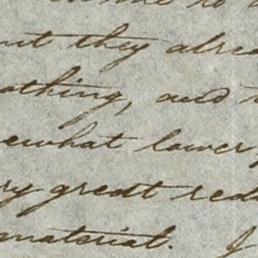 but they alrea
othing, and
ewhat lower
ry great redu
material. I